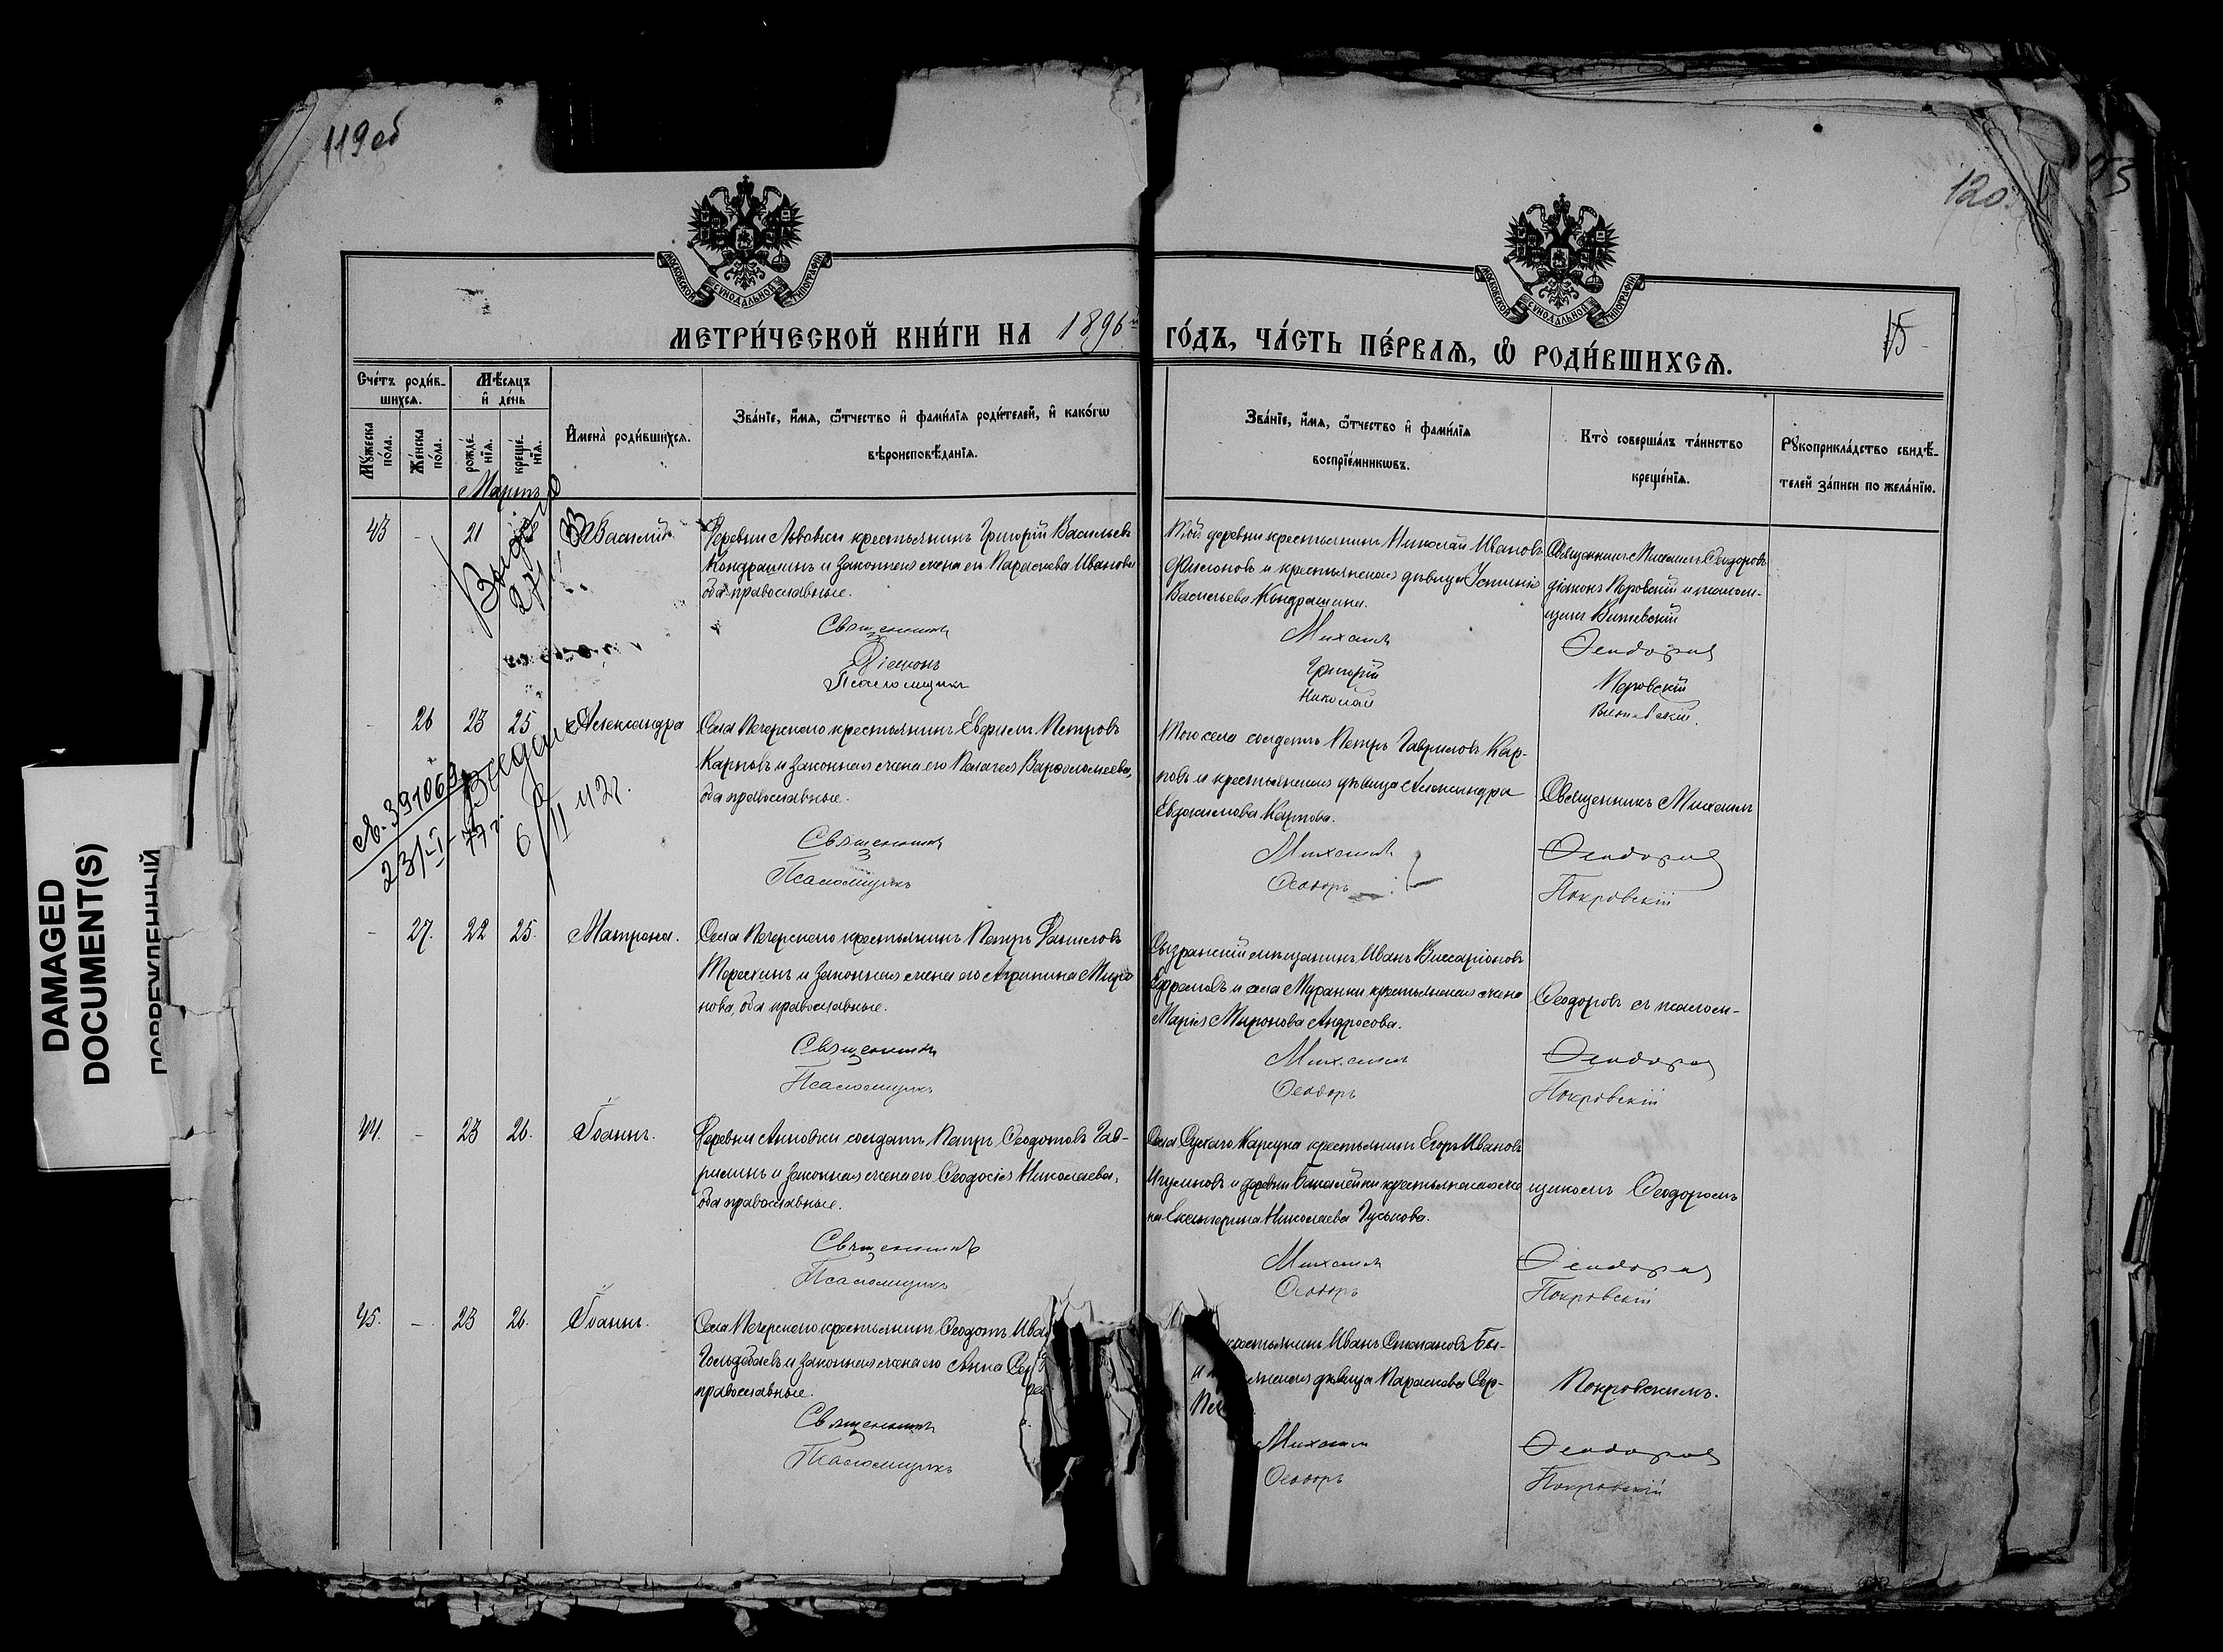 119 об
120
15
МОСКОВСКОЙ СУНОДАЛЬНОЙ ТИПОГРАФІИ
МОСКОВСКОЙ СУНОДАЛЬНОЙ ТИПОГРАФІИ
МЕТРИ́ЧЕСКОЙ КНИ́ГИ НА 1896й ГО́ДЪ, ЧА́СТЬ ПЕ́РВАѦ, Ѡ҆ РОДИ́ВШИХСѦ.
Сче́тъ роди́в-
шихсѧ.
Мꙋ́жеска по́ла.
Же́нска по́ла.
Мѣ́сѧцъ
и҆ де́нь
рожде́нїѧ.
креще́нїѧ.
И҆мена̀ роди́вшихсѧ.
Зва́нїе, и҆́мѧ, ѻ҆́тчество и҆ фами́лїѧ роди́телей, и҆ како́гѡ
вѣроисповѣ́данїѧ.
Зва́нїе, и҆́мѧ, ѻ҆́тчество и҆ фами́лїѧ
воспрїе́мникѡвъ.
Кто̀ соверша́лъ та́инство
креще́нїѧ.
Рꙋкоприкла́дство свидѣ́-
телей за́писи по жела́нїю.
Мартъ
43 - 21 Василій
Деревни Львовки крестьянинъ Григорій Васильевъ
Кондрашинъ и законная жена его Параскева Иванова
оба православные.
Священникъ
Діаконъ
Псаломщикъ
Той деревни крестьянинъ Николай Ивановъ
Филионовъ и крестьянская дѣвица Устинія
Васильева Кондрашина.
Михаилъ
Григорій
Николай
Священникъ Михаилъ Ѳеодоровъ
діаконъ Перовскій и псалом-
щикъ Витевскій
Ѳеодоровъ
Перовскій
Витевскій.
- 26 23 25 Александра
Села Печерскаго крестьянинъ Евфимъ Петровъ
Карповъ и законная жена его Пелагея Варѳоломеева,
оба православные.
Священникъ
Псаломщикъ
Того села солдатъ Петръ Гавриловъ Кар-
повъ и крестьянская дѣвица Александра
Евдокимова Карпова.
Михаилъ
Ѳеодоръ
Священникъ Михаилъ
Ѳеодоровъ
Покровскій
- 27. 22 25. Матрона.
Села Печерскаго крестьянинъ Петръ Даниловъ
Терехинъ и законная жена его Агрипина Миро
нова, оба православные.
Священникъ
Псаломщикъ
Сызранскій мѣщанинъ Иванъ Виссаріоновъ
Ефремовъ и села Муранки крестьянская жена
Марія Миронова Андросова.
Михаилъ
Ѳеодоръ
Ѳеодоровъ съ псалом-
Ѳеодоровъ
Покровскій
44. - 23 26. Іоаннъ.
Деревни Анновки солдатъ Петръ Ѳеодотовъ Гав-
рилинъ и законная жена его Ѳеодосія Николаева,
оба православные.
Священникъ
Псаломщикъ
Села Сухаго Карсуна крестьянинъ Егоръ Ивановъ
Игумновъ и деревни крестьянская же
на Екатерина Николаева Гуськова.
Михаилъ
Ѳеодоръ
щикомъ Ѳеодоромъ
Ѳеодоровъ
Покровскій
45. - 23 26. Іоаннъ.
Села Печерскаго крестьянинъ Ѳеодотъ Ива
и законная жена его Анна Сер
православные.
Священникъ
Псаломщикъ
крестьянинъ Иванъ Степановъ Бы-
дѣвица Параскева Сер-
Михаилъ
Ѳеодоръ
Покровскимъ.
Ѳеодоровъ
Покровскій
№ 391062
23/I-77г.
Выдан
6/II 42г.
DAMAGED
DOCUMENT(S)
ПОВРЕЖДЕННЫЙ